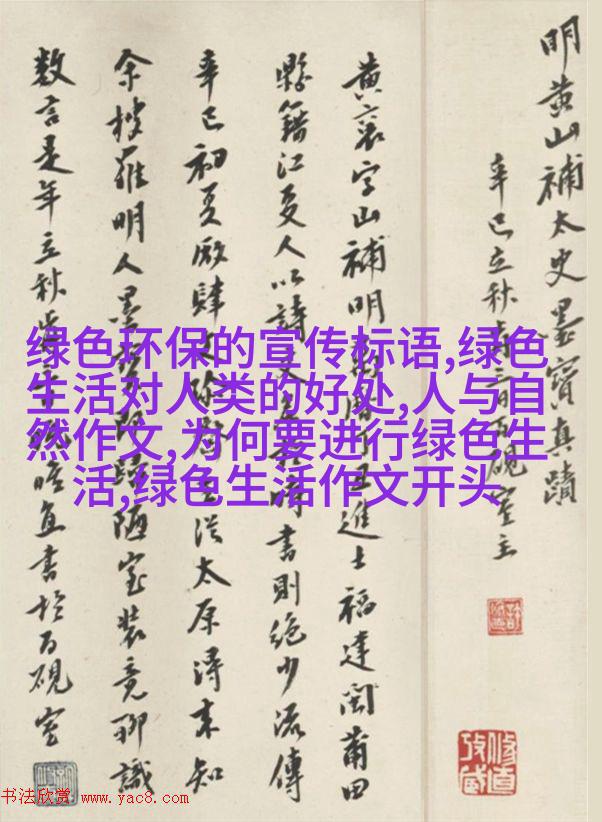 明黄山補太史墨寶真蹟
辛巳立秋百硯室主
黄襄字山補明丑進士福建閩莆田
縣籍江夏人以詩時書則絶少流傳
辛巳初夏厰肆太原得来知
余搜羅明人墨陋室装竟聊識
数言是年立秋書於百硯室
绿色环保的宣传标语,绿色
生活对人类的好处,人与自
然作文,为何要进行绿色生
活,绿色生活作文开头
书法欣赏 www.yac8.com